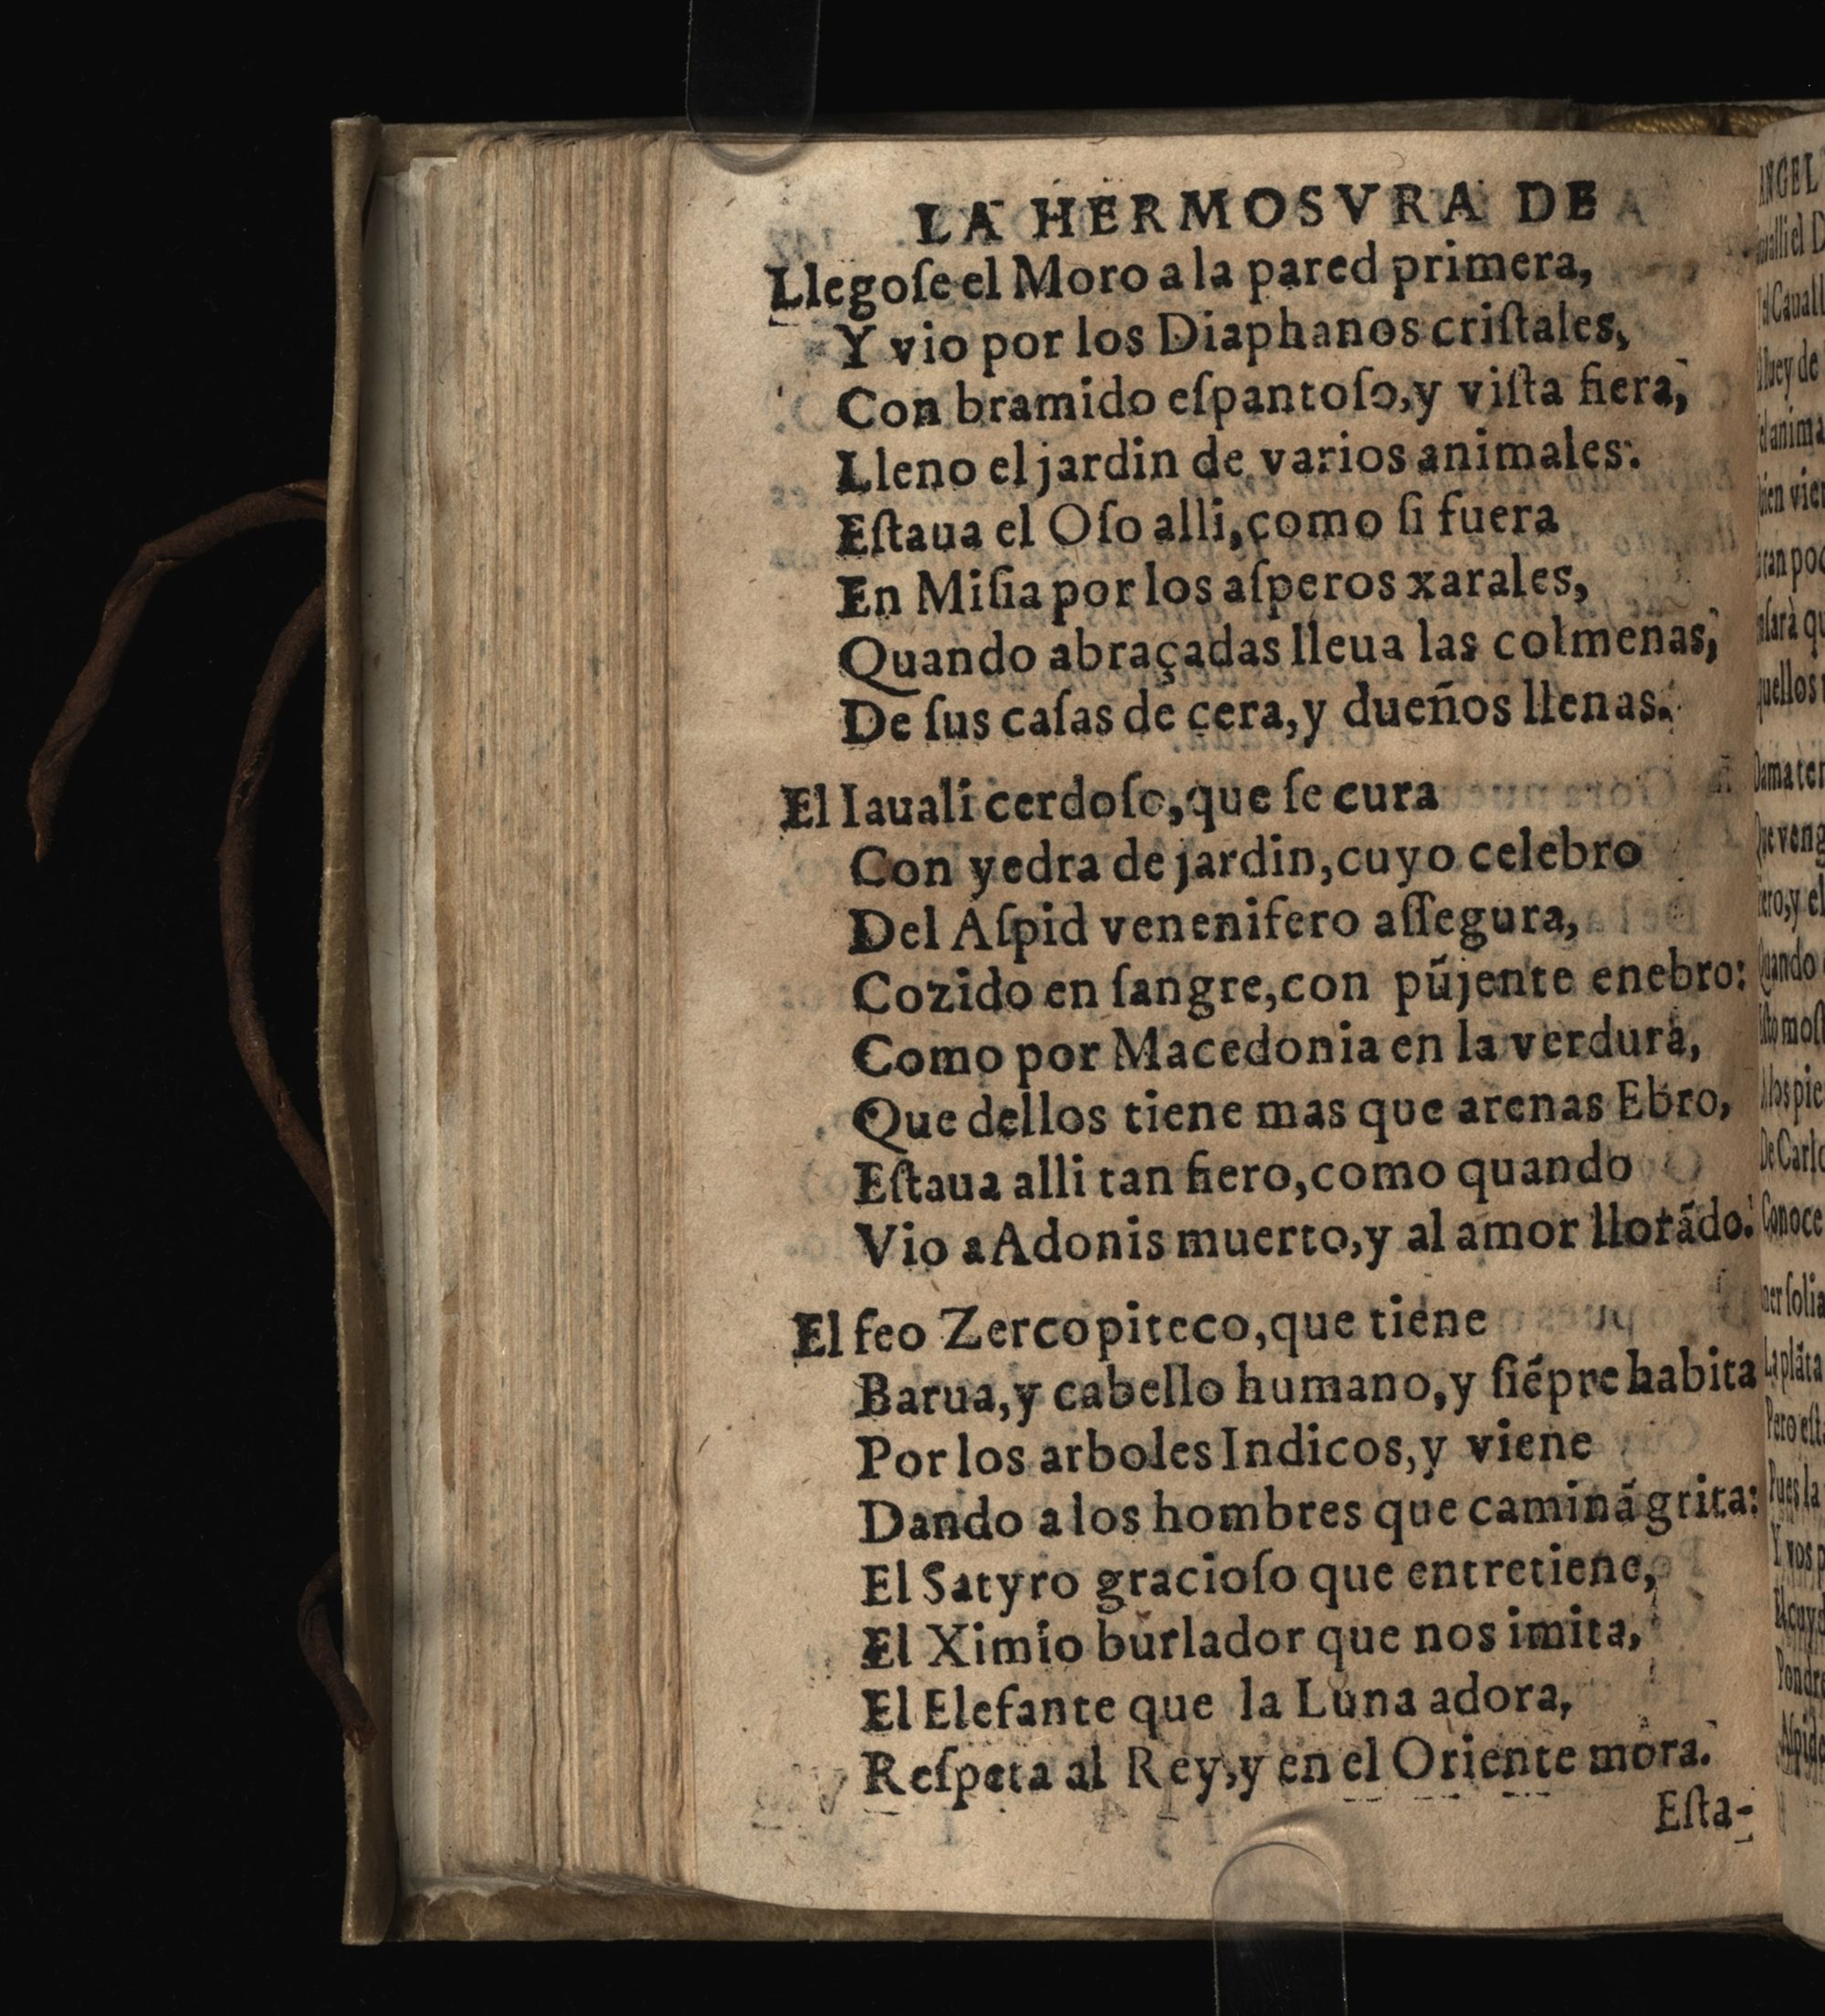 LA HERMOSVRA DE
Llegoſe el Moro a la pared primera,
Y vio por los Diaphanos criſtales,
Con bramido eſpantoſo, y viſta fiera,
Lleno el jardin de varios animales:
Eſtaua el Oſo alli, como ſi fuera
En Miſia por los aſperos xarales,
Quando abraçadas lleua las colmenas,
De ſus caſas de cera, y dueños llenas.
El Iauali cerdoſo, que ſe cura
Con yedra de jardin, cuyo celebro
Del Aſpid venenifero aſſegura,
Cozido en ſangre, con pũjente enebro:
Como por Macedonia en la verdura,
Que dellos tiene mas que arenas Ebro,
Eſtaua alli tan fiero, como quando
Vio a Adonis muerto, y al amor llorãdo.
El feo Zercopiteco, que tiene
Barua, y cabello humano, y ſiẽpre habita
Por los arboles Indicos, y viene
Dando a los hombres que caminã grita:
El Satyro gracioſo que entretiene,
El Ximio burlador que nos imita,
El Elefante que la Luna adora,
Reſpeta al Rey, y en el Oriente mora.
Eſta-